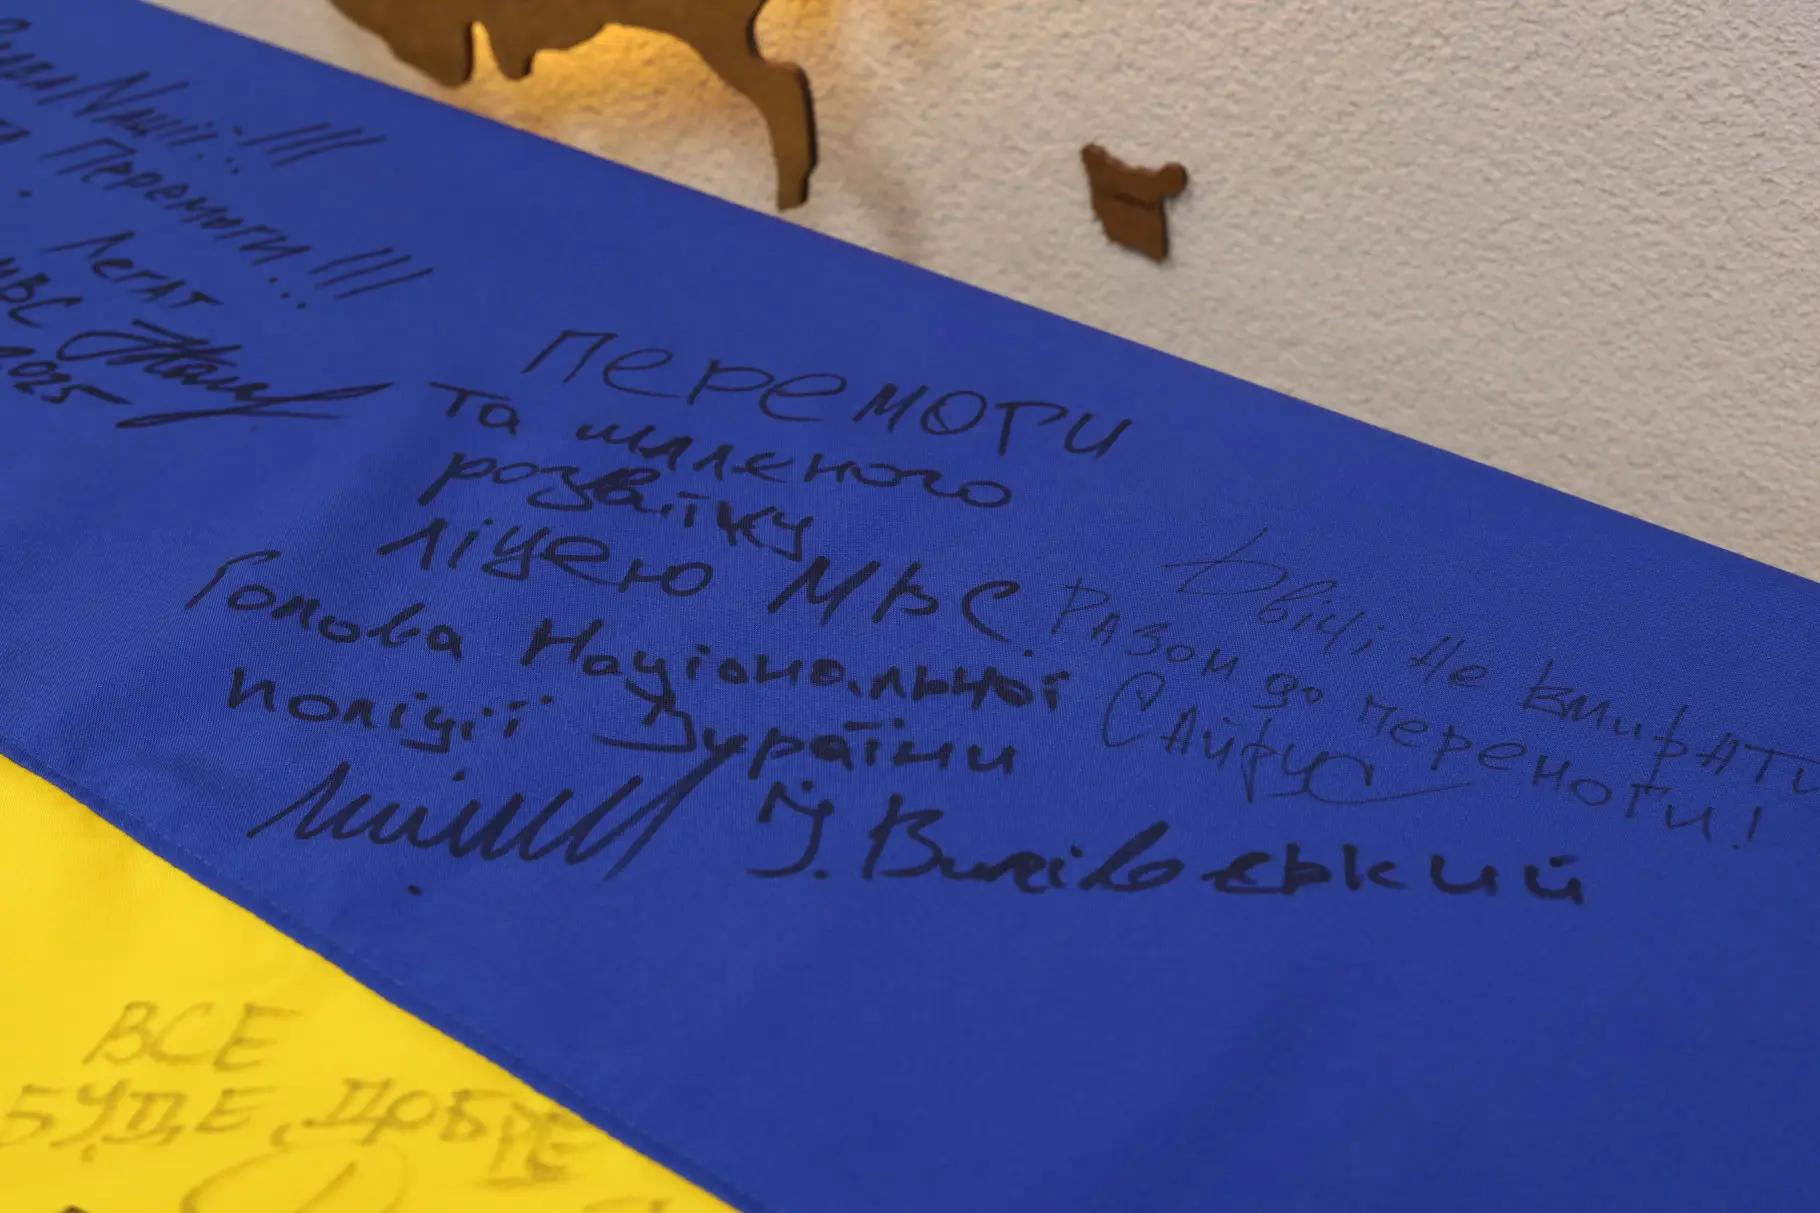 Нації!!!
Перемоги!!!
Легат
МВС
2025
Перемоги
та шаленого
розвитку
ліцею МВС.
Голова Національної
поліції України
І. Вигівський
Двічі не вмирати
Разом до перемоги!
Сайрус
ВСЕ
БУДЕ ДОБРЕ